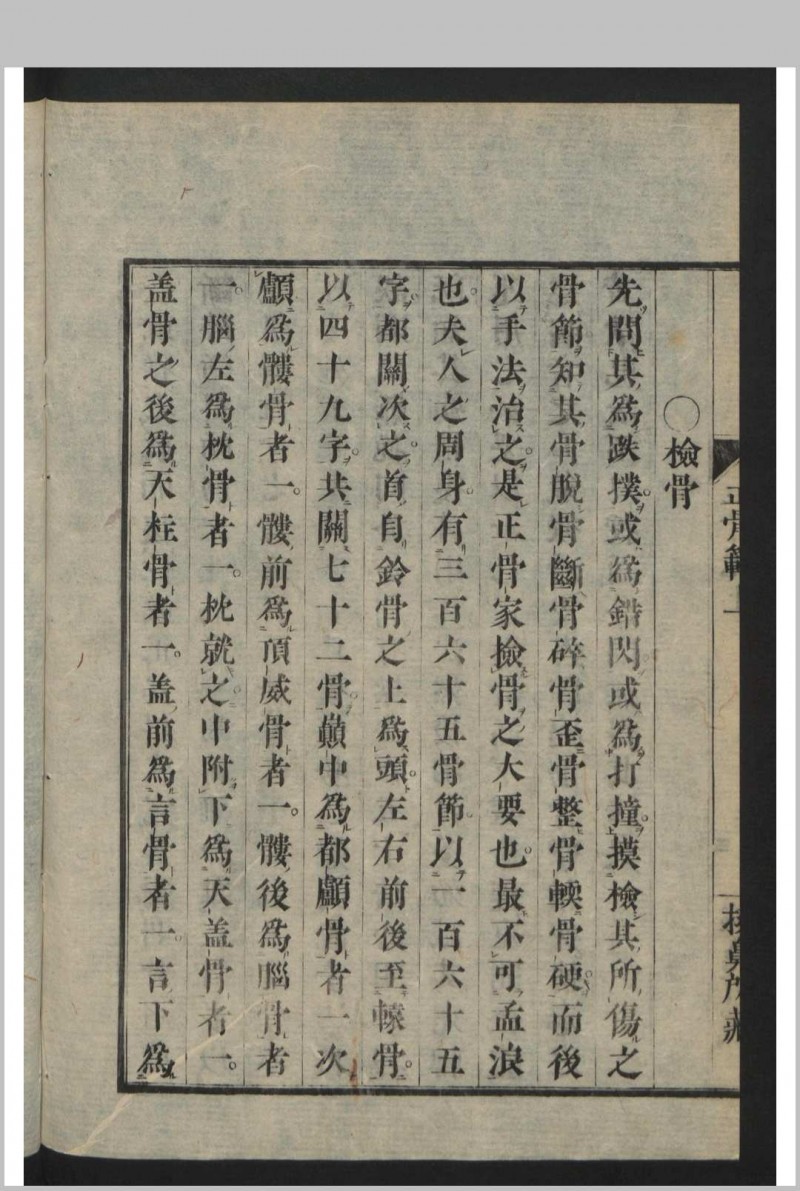 正骨範
〇檢骨
先問其爲跌撲。或爲錯閃。或爲打撞。摸檢其所傷之
骨節。知其骨脫骨斷骨碎骨歪骨整骨輭骨硬。而後
以手法治之。是正骨家檢骨之大要也。最不可孟浪
也。夫人之周身。有三百六十五骨節。以一百六十五
字。都關次之。首自鈴骨之上爲頭。左右前後至轅骨。
以四十九字。共關七十二骨。巔中爲都顱骨者一。次
顱爲髏骨者一。髏前爲頂威骨者一。髏後爲腦骨者
一。腦左爲枕骨者一。枕就之中附下爲天盖骨者一。
盖骨之後爲天柱骨者一。盖前爲言骨者一。言下爲